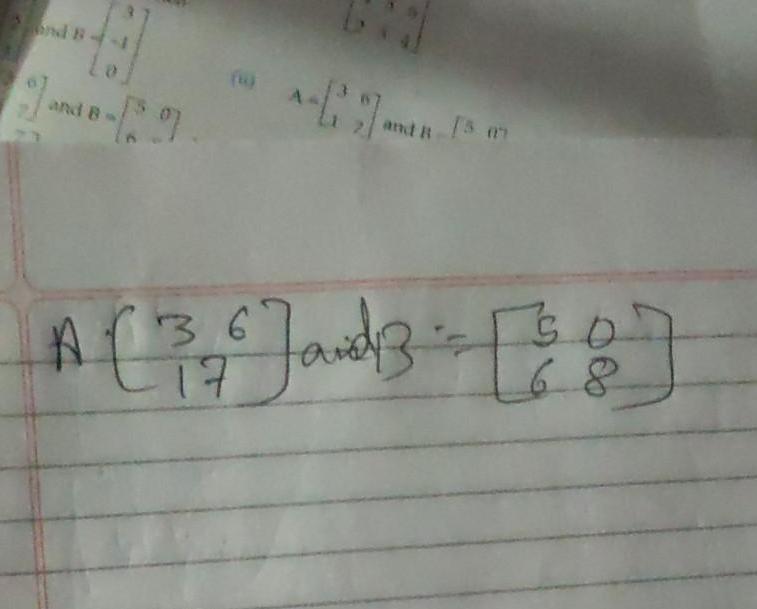 and B = [3 -1 0]
6] and B = [5 0]
(ii) A = [3 6 1 2] and B = [5 0]
A [3 6
1 7] and B = [5 0
6 8]